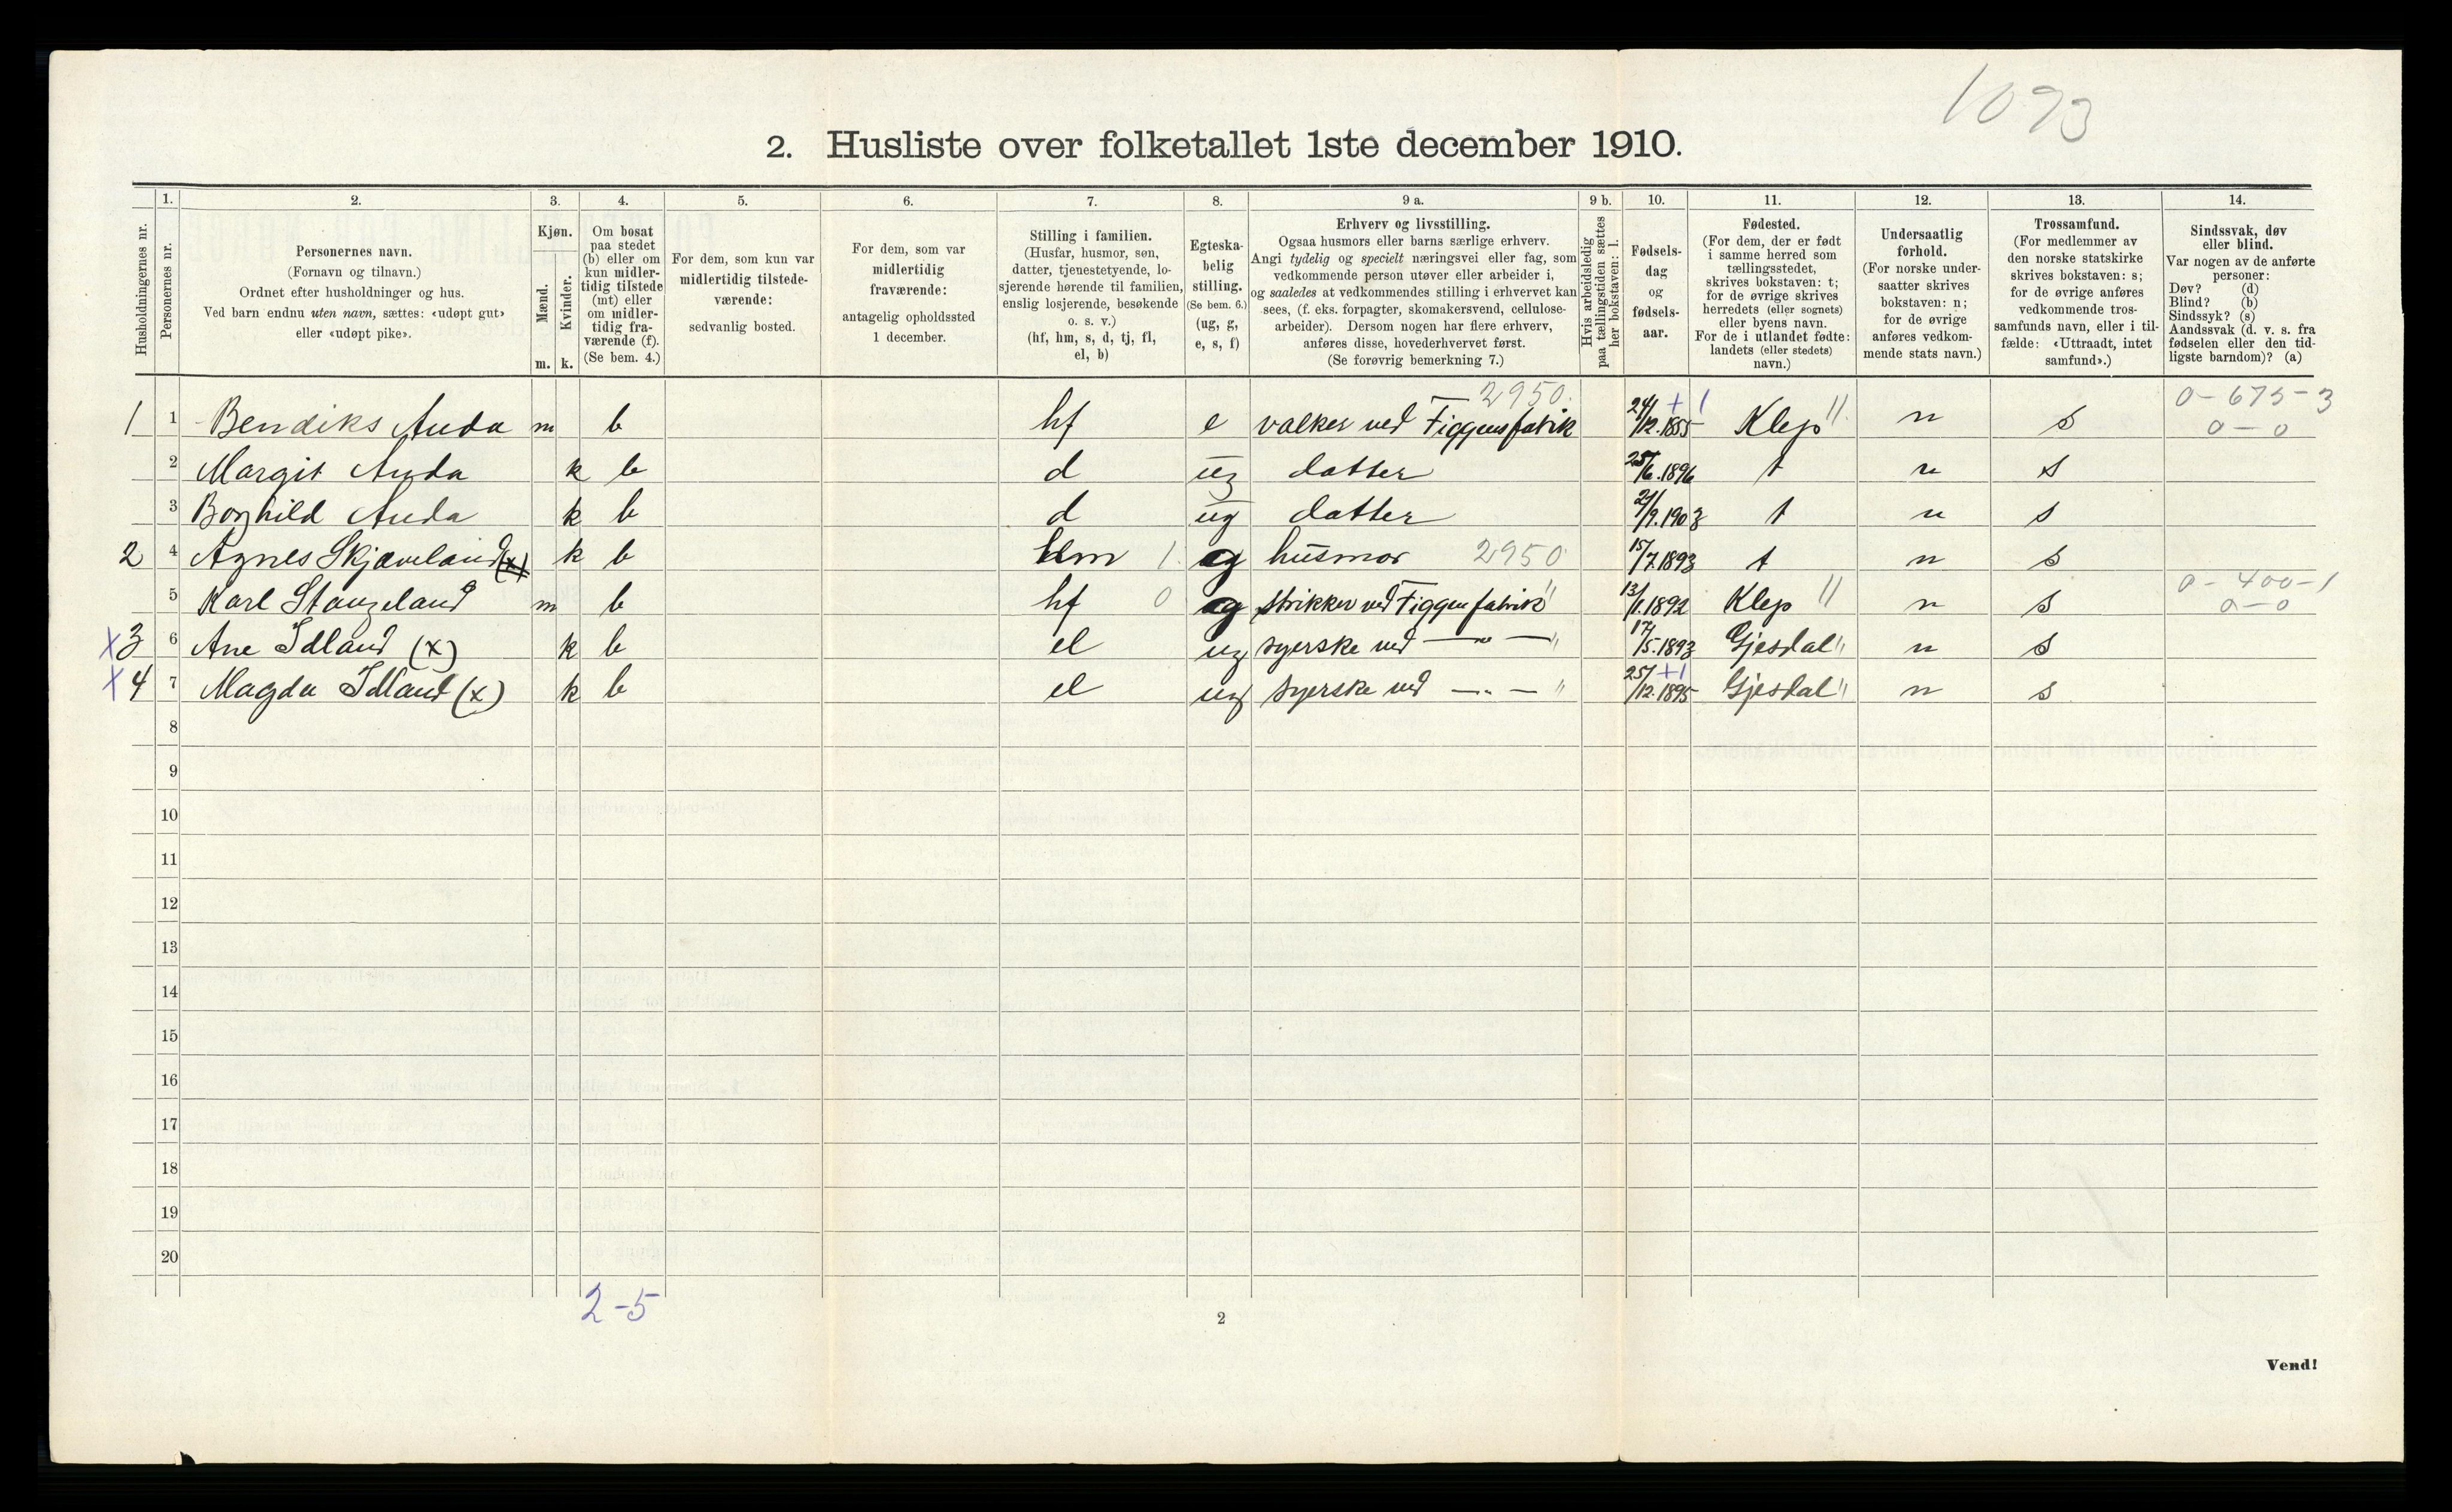 1093
2. Husliste over folketallet 1ste december 1910.
Husholdningernes nr.
1.
Personernes nr.
2.
Personernes navn.
(Fornavn og tilnavn.)
Ordnet efter husholdninger og hus.
Ved barn endnu uten navn, sættes: «udøpt gut»
eller «udøpt pike».
3.
Kjøn.
Mænd.
Kvinder.
m. k.
4.
Om bosat
paa stedet
(b) eller om
kun midler-
tidig tilstede
(mt) eller
om midler-
tidig fra-
værende (f).
(Se bem. 4.)
5.
For dem, som kun var
midlertidig tilstede-
værende:
sedvanlig bosted.
6.
For dem, som var
midlertidig
fraværende:
antagelig opholdssted
1 december.
7.
Stilling i familien.
(Husfar, husmor, søn,
datter, tjenestetyende, lo-
sjerende hørende til familien,
enslig losjerende, besøkende
o. s. v.)
(hf, hm, s, d, tj, fl,
el, b)
8.
Egteska-
belig
stilling.
(Se bem. 6.)
(ug, g,
e, s, f)
9 a.
Erhverv og livsstilling.
Ogsaa husmors eller barns særlige erhverv.
Angi tydelig og specielt næringsvei eller fag, som
vedkommende person utøver eller arbeider i,
og saaledes at vedkommendes stilling i erhvervet kan
sees, (f. eks. forpagter, skomakersvend, cellulose-
arbeider). Dersom nogen har flere erhverv,
anføres disse, hovederhvervet først.
(Se forøvrig bemerkning 7.)
9 b.
Hvis arbeidsledig
paa tællingstiden sættes
her bokstaven: l.
10.
Fødsels-
dag
og
fødsels-
aar.
11.
Fødested.
(For dem, der er født
i samme herred som
tællingsstedet,
skrives bokstaven: t;
for de øvrige skrives
herredets (eller sognets)
eller byens navn.
For de i utlandet fødte:
landets (eller stedets)
navn.)
12.
Undersaatlig
forhold.
(For norske under-
saatter skrives
bokstaven: n;
for de øvrige
anføres vedkom-
mende stats navn.)
13.
Trossamfund.
(For medlemmer av
den norske statskirke
skrives bokstaven: s;
for de øvrige anføres
vedkommende tros-
samfunds navn, eller i til-
fælde: «Uttraadt, intet
samfund».)
14.
Sindssvak, døv
eller blind.
Var nogen av de anførte
personer:
Døv? (d)
Blind? (b)
Sindssyk? (s)
Aandssvak (d. v. s. fra
fødselen eller den tid-
ligste barndom)? (a)
2950. + 1 0-675-3
1 1 Bendiks Auda m b hf e valker ved Figgensfabrik 24/12.1855 Klep " n s 0-0
2 Margit Auda k b d ug datter 25/6.1896 t n s
3 Borghild Auda k b d ug datter 21/9.1903 t n s
2 4 Agnes Skjæveland (x) k b hm 1. g husmor 2950 15/7.1893 t n s
5 Karl Stangeland m b hf 0 g strikker ved Figgenfabrik " 13/1.1892 Klep " n s 0-400-1
0-0
x3 6 Ane Idland (x) k b el ug syerske ved —"— " 17/5.1893 Gjesdal " n s
x4 7 Magda Idland (x) k b el ug syerske ved —"— " 25/12.1895 +1 Gjesdal " n s
8
9
10
11
12
13
14
15
16
17
18
19
20
2-5
2
Vend!